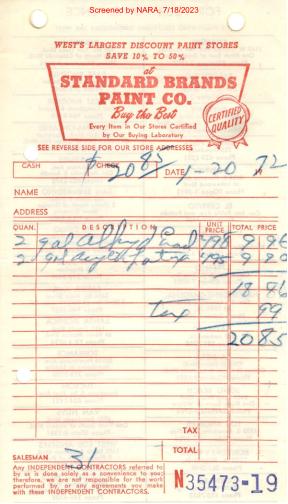 Screened by NARA, 7/18/2023
WEST'S LARGEST DISCOUNT PAINT STORES
SAVE 10% TO 50%
at
STANDARD BRANDS
PAINT CO.
Buy the Best
Every Item in Our Stores Certified
by Our Buying Laboratory
CERTIFIED QUALITY
SEE REVERSE SIDE FOR OUR STORE ADDRESSES
CASH $ CHECK 20 85 DATE 1-20 19 72
NAME
ADDRESS
QUAN. DESCRIPTION UNIT PRICE TOTAL PRICE
2 gal Alkyd 498 9 96
2 gal 495 9 90
18 86
Tax 99
20 85
TAX
TOTAL
SALESMAN 31
Any INDEPENDENT CONTRACTORS referred to
by us is done solely as a convenience to you;
therefore, we are not responsible for the work
performed by, or any agreements you make
with these INDEPENDENT CONTRACTORS.
N35473-19